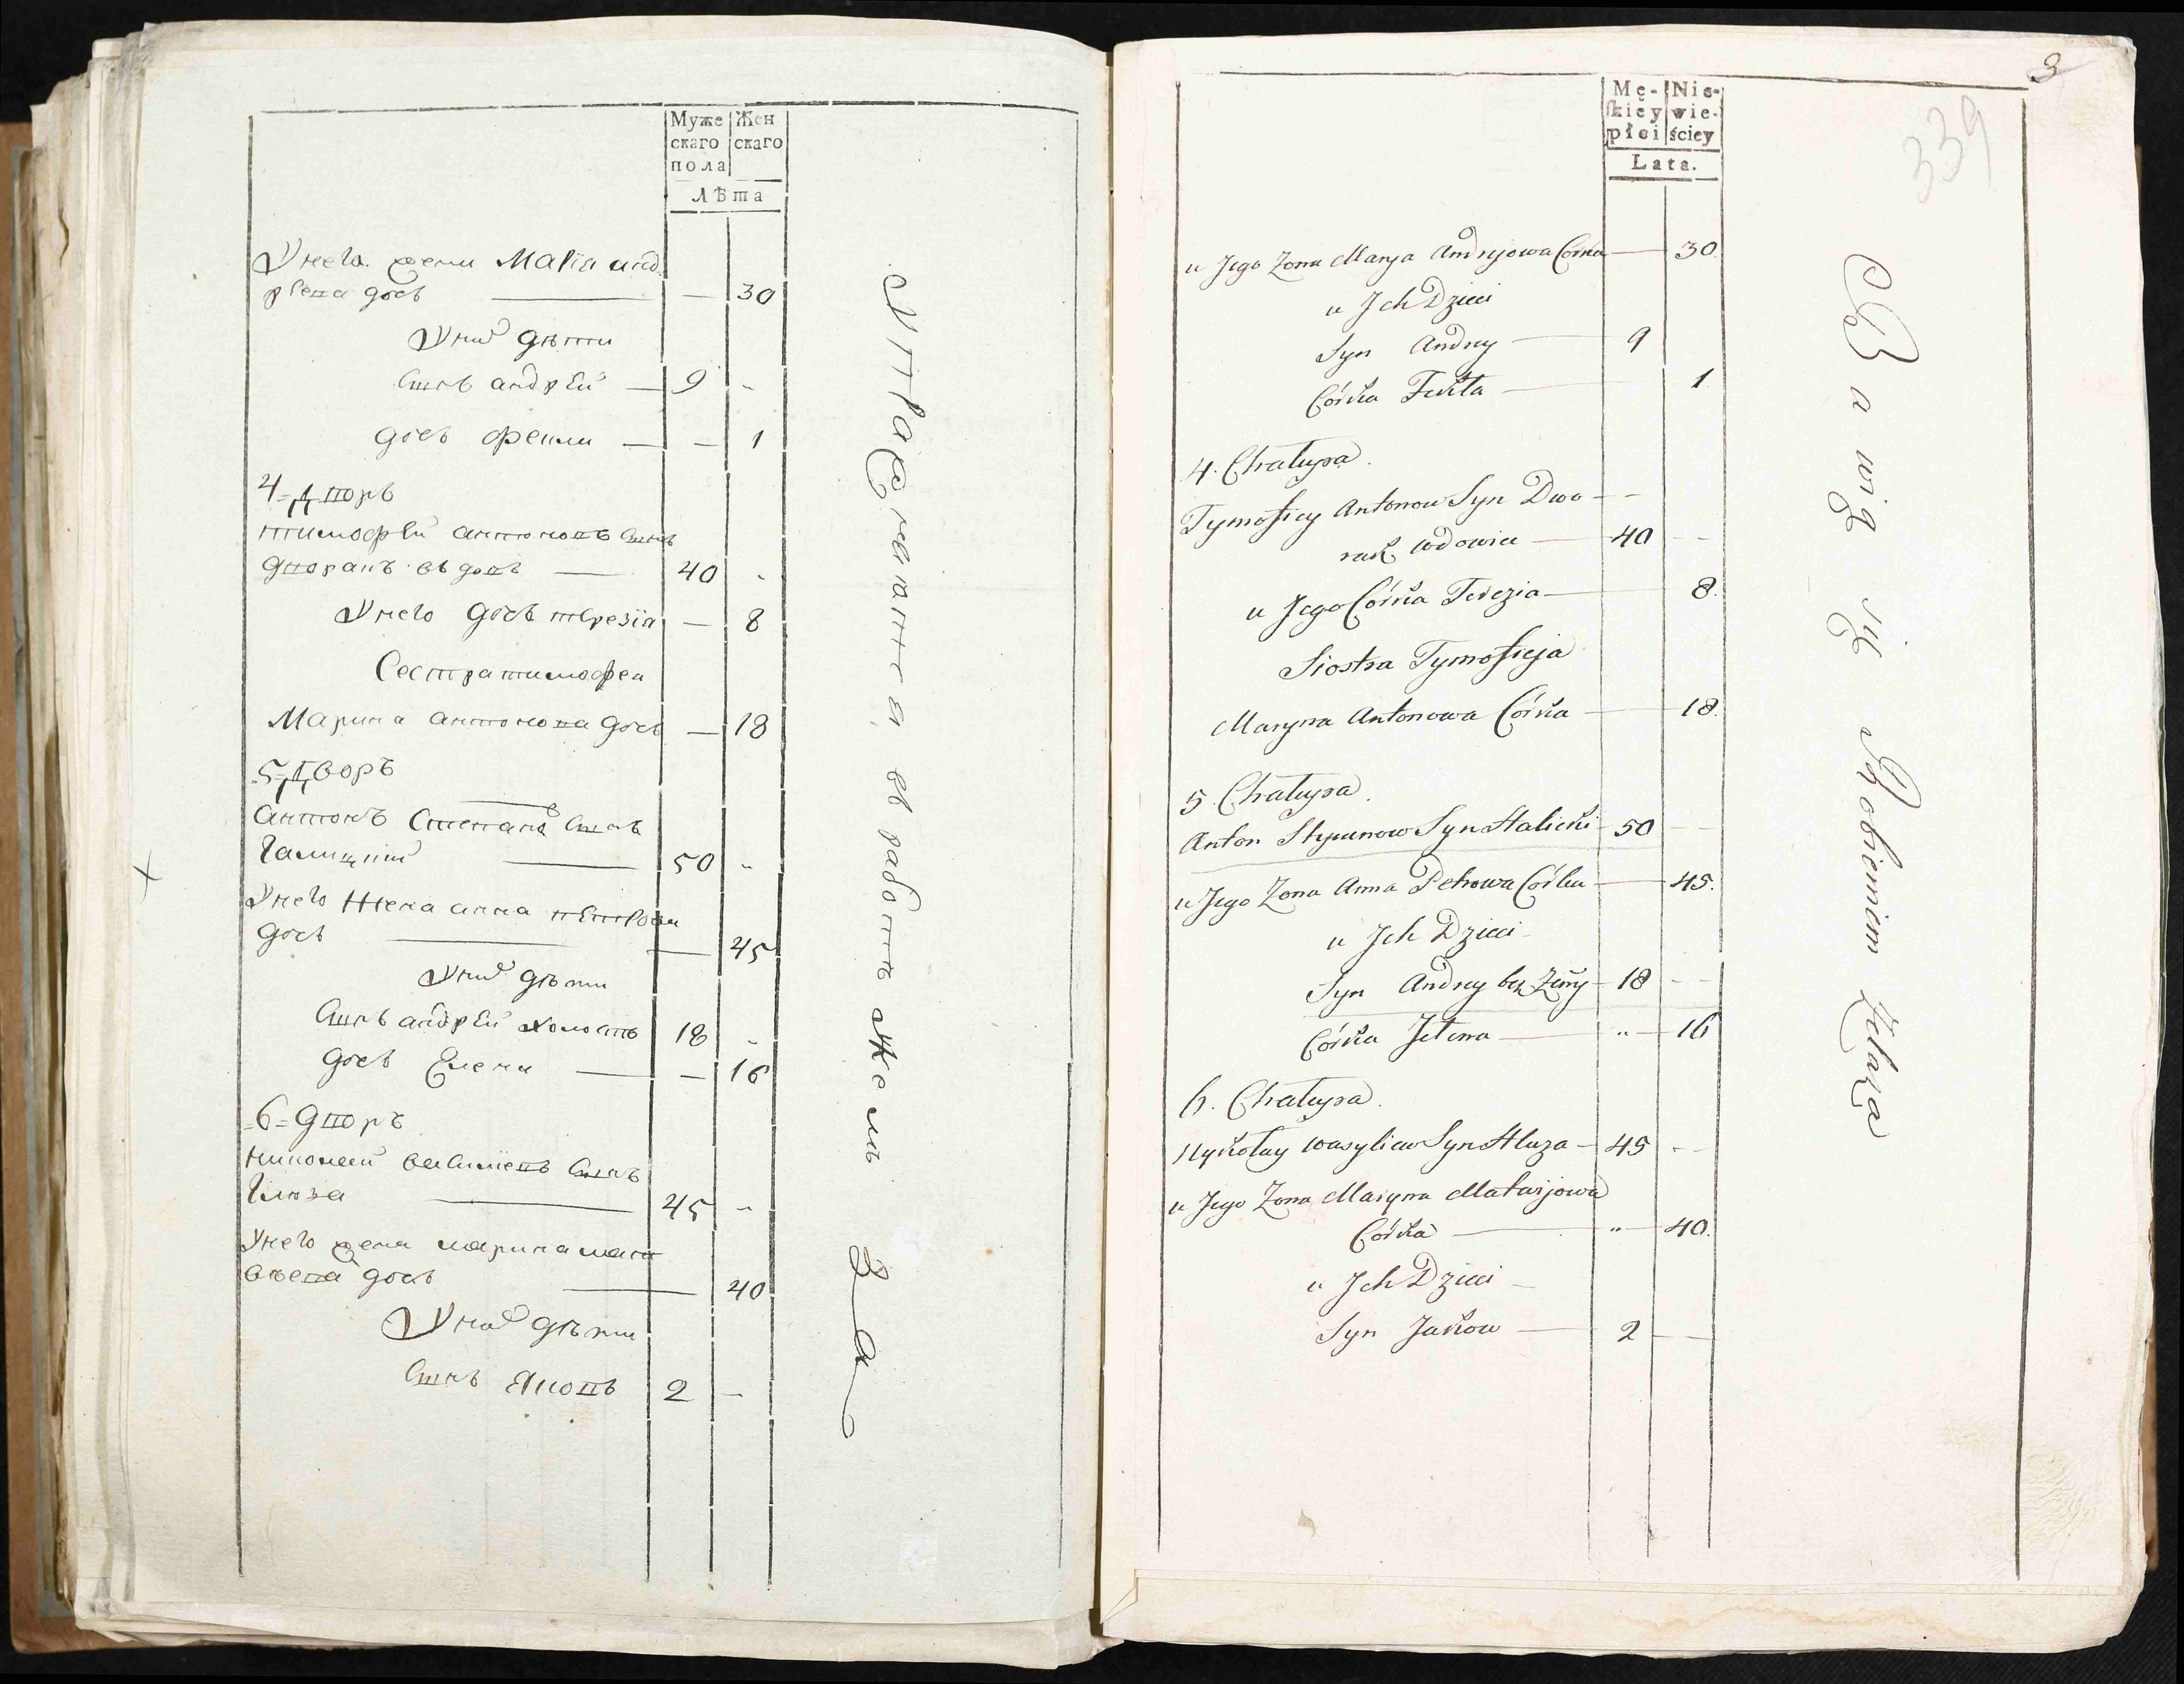 Муже Жен
скаго скаго
пола
Лѣта
У него жена Марïа анд
рѣева дочь — — 30
У них дѣти
Сынъ андрей — 9 -
дочь Фекла — — 1
4=Дворъ
тимофей антоновъ Сынъ
дворакъ вдовъ — 40 -
У него дочь терезïа — 8
Сестра тимофея
Марина антонова дочь — 18
5=Дворъ
антонъ Степановъ Сынъ
Галицкий — 50 -
У него Жена анна петрова
дочь — — 45
У них дѣти
Сынъ андрей холостъ 18 -
дочь Елена — — 16
6=дворъ
николай василïевъ Сынъ
Глюза — 45 -
У него жена марина мат
вѣева дочь — 40
У них дѣти
Сынъ Яковъ 2 -
Упражненïя в работѣ Жемлѣ За
3
339
Mę- Nie-
skiey wie-
płci ściey
Lata.
u Jego Zona Marya Andryjowa Corka — 30
u Jch Dzieci
Syn Andrey — 9
Córka Fekla — 1
4. Chałupa.
Tymofiey Antonow Syn Dwo- -
rak wdowiec — 40 - -
u Jego Córka Terezia — 8.
Siostra Tymofieja
Maryna Antonowa Córka — 18.
5. Chałupa.
Anton Stepanow Syn Halicki - 50 - -
u Jego Zona Anna Petrowa Córka — 45.
u Jch Dzieci
Syn Andrey bez Żony - 18 - -
Córka Jelena — " — 16
6. Chałupa.
Mykołay Wasyliew Syn Hluza - 45 - -
u Jego Zona Maryna Matwijowa
Córka — " — 40.
u Jch Dzieci
Syn Jakow — 2 — —
Bawią się Robieniem